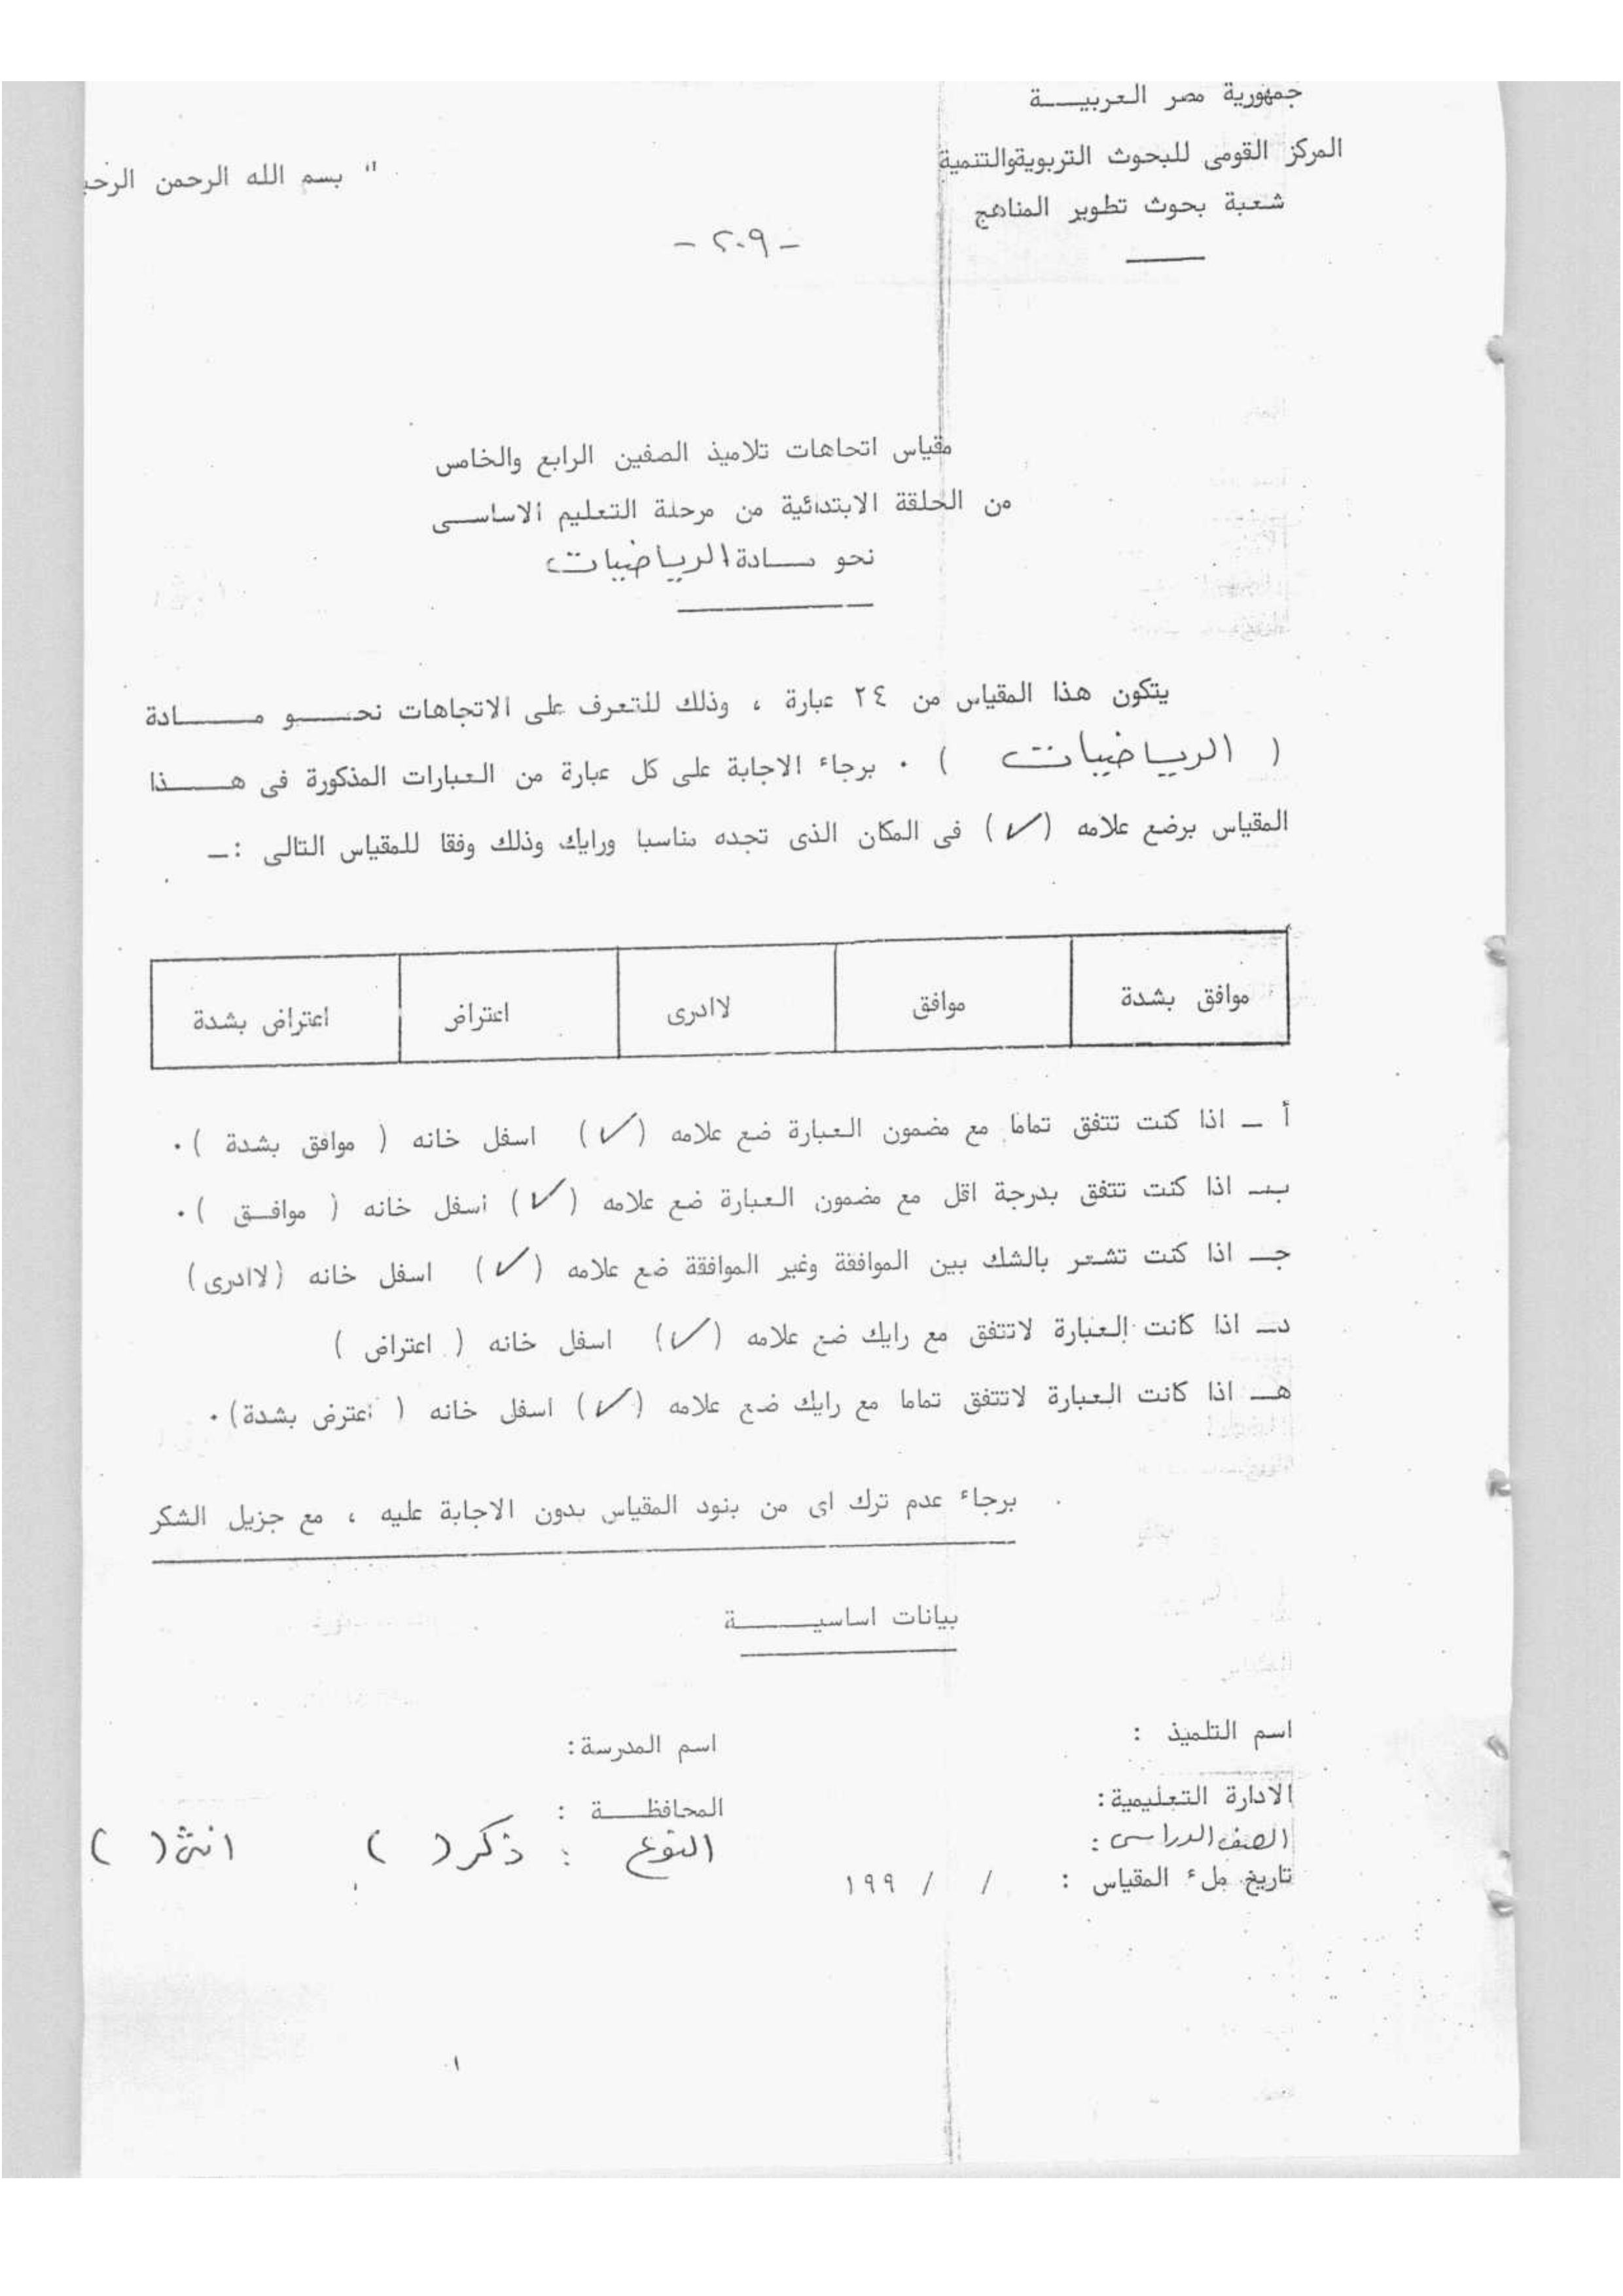 جمهورية مصر العربيـــة
المركز القومى للبحوث التربويةوالتنمية
شعبة بحوث تطوير المناهج
" بسم الله الرحمن
- ٢٠٩ -
مقياس اتحاهات تلاميذ الصفين الرابع والخامس
من الحلقة الابتدائية من مرحلة التعليم الاساســى
نحو مــادة الرياضيات
يتكون هذا المقياس من ٢٤ عبارة ، وذلك للتعرف على الاتجاهات نحــــو مــــادة
( الرياضيات ) . برجاء الاجابة على كل عبارة من العبارات المذكورة فى هــــذا
المقياس برضع علامه (✓) فى المكان الذى تجده مناسبا ورايك وذلك وفقا للمقياس التالى :ـ
موافق بشدة
موافق
لاادرى
اعتراض
اعتراض بشدة
أ ـ اذا كنت تتفق تماما مع مضمون العبارة ضع علامه (✓) اسفل خانه ( موافق بشدة ).
بـ اذا كنت تتفق بدرجة اقل مع مضمون العبارة ضع علامه (✓) أسفل خانه ( موافــق ).
جـ اذا كنت تشعر بالشك بين الموافقة وغير الموافقة ضع علامه (✓) اسفل خانه (لاادرى)
دـ اذا كانت العبارة لاتتفق مع رايك ضع علامه (✓) اسفل خانه ( اعتراض )
هـ اذا كانت العبارة لاتتفق تماما مع رايك ضع علامه (✓) اسفل خانه ( أعترض بشدة).
برجاء عدم ترك اى من بنود المقياس بدون الاجابة عليه ، مع جزيل الشكر
بيانات اساسيــــة
اسم التلميذ :
اسم المدرسة:
الادارة التعليمية:
المحافظــة :
الصف الدراسى :
النوع : ذكر ( ) انثى ( )
تاريخ ملء المقياس : / / ١٩٩
١